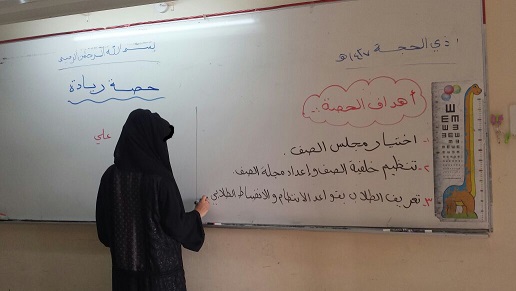 ١ ذي الحجة ١٤٣٧هـ
بسم الله الرحمن الرحيم
حصة ريادة
علي
أهداف الحصة :-
١- اختيار مجلس الصف .
٢- تنظيم خلفية الصف وإعداد مجلة الصف
٣- تعريف الطلاب بقواعد الانتظام والانضباط الطلابي